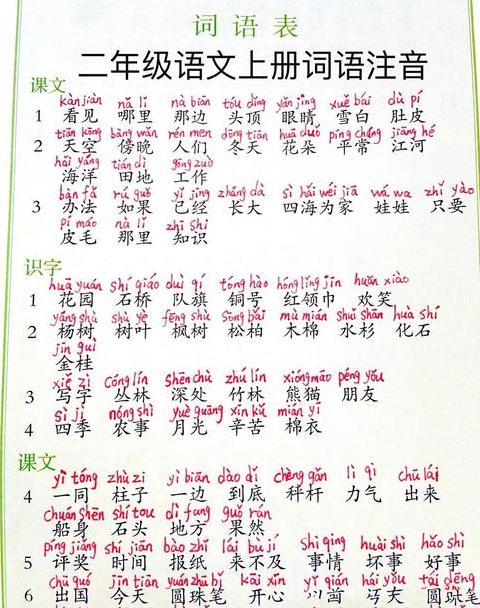 词语表
二年级语文上册词语注音
课文
kàn jiàn nǎ lǐ nà biān tóu dǐng yǎn jīng xuě bái dù pí
1 看见 哪里 那边 头顶 眼睛 雪白 肚皮
tiān kōng bàng wǎn rén men dōng tiān huā duǒ píng cháng jiāng hé
2 天空 傍晚 人们 冬天 花朵 平常 江河
hǎi yáng tián dì gōng zuò
海洋 田地 工作
bàn fǎ rú guǒ yǐ jīng zhǎng dà sì hǎi wéi jiā wá wa zhǐ yào
3 办法 如果 已经 长大 四海为家 娃娃 只要
pí máo nà lǐ zhī shi
皮毛 那里 知识
识字
huā yuán shí qiáo duì qí tóng hào hóng lǐng jīn huān xiào
1 花园 石桥 队旗 铜号 红领巾 欢笑
yáng shù shù yè fēng shù sōng bǎi mù mián shuǐ shān huà shí
2 杨树 树叶 枫树 松柏 木棉 水杉 化石
jīn guì
金桂
xiě zì cóng lín shēn chù zhú lín xióng māo péng yǒu
3 写字 丛林 深处 竹林 熊猫 朋友
sì jì nóng shì yuè guāng xīn kǔ mián yī
4 四季 农事 月光 辛苦 棉衣
课文
yì tóng zhù zi yì biān dào dǐ chèng gǎn lì qi chū lái
4 一同 柱子 一边 到底 秤杆 力气 出来
chuán shēn shí tou dì fang guǒ rán
船身 石头 地方 果然
píng jiǎng shí jiān bào zhǐ lái bu jí shì qing huài shì hǎo shì
5 评奖 时间 报纸 来不及 事情 坏事 好事
chū guó jīn tiān yuán zhū bǐ kāi xīn yǐ qián hái yǒu
6 出国 今天 圆珠笔 开心